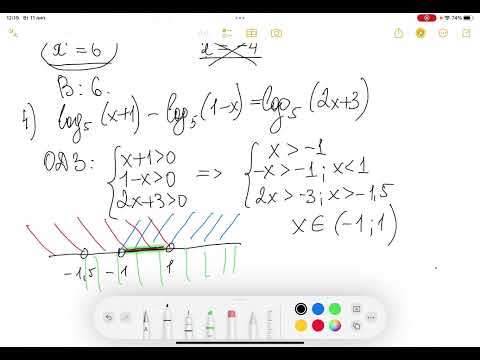 12:19 Вт 11 лип.
74 %
x = 6
x = -4
В: 6.
4) log₅(x+1) - log₅(1-x) = log₅(2x+3)
ОДЗ: { x+1>0 => { x > -1
1-x>0 -x>-1; x<1
2x+3>0 2x>-3; x>-1,5
x ∈ (-1; 1)
-1,5 -1 1